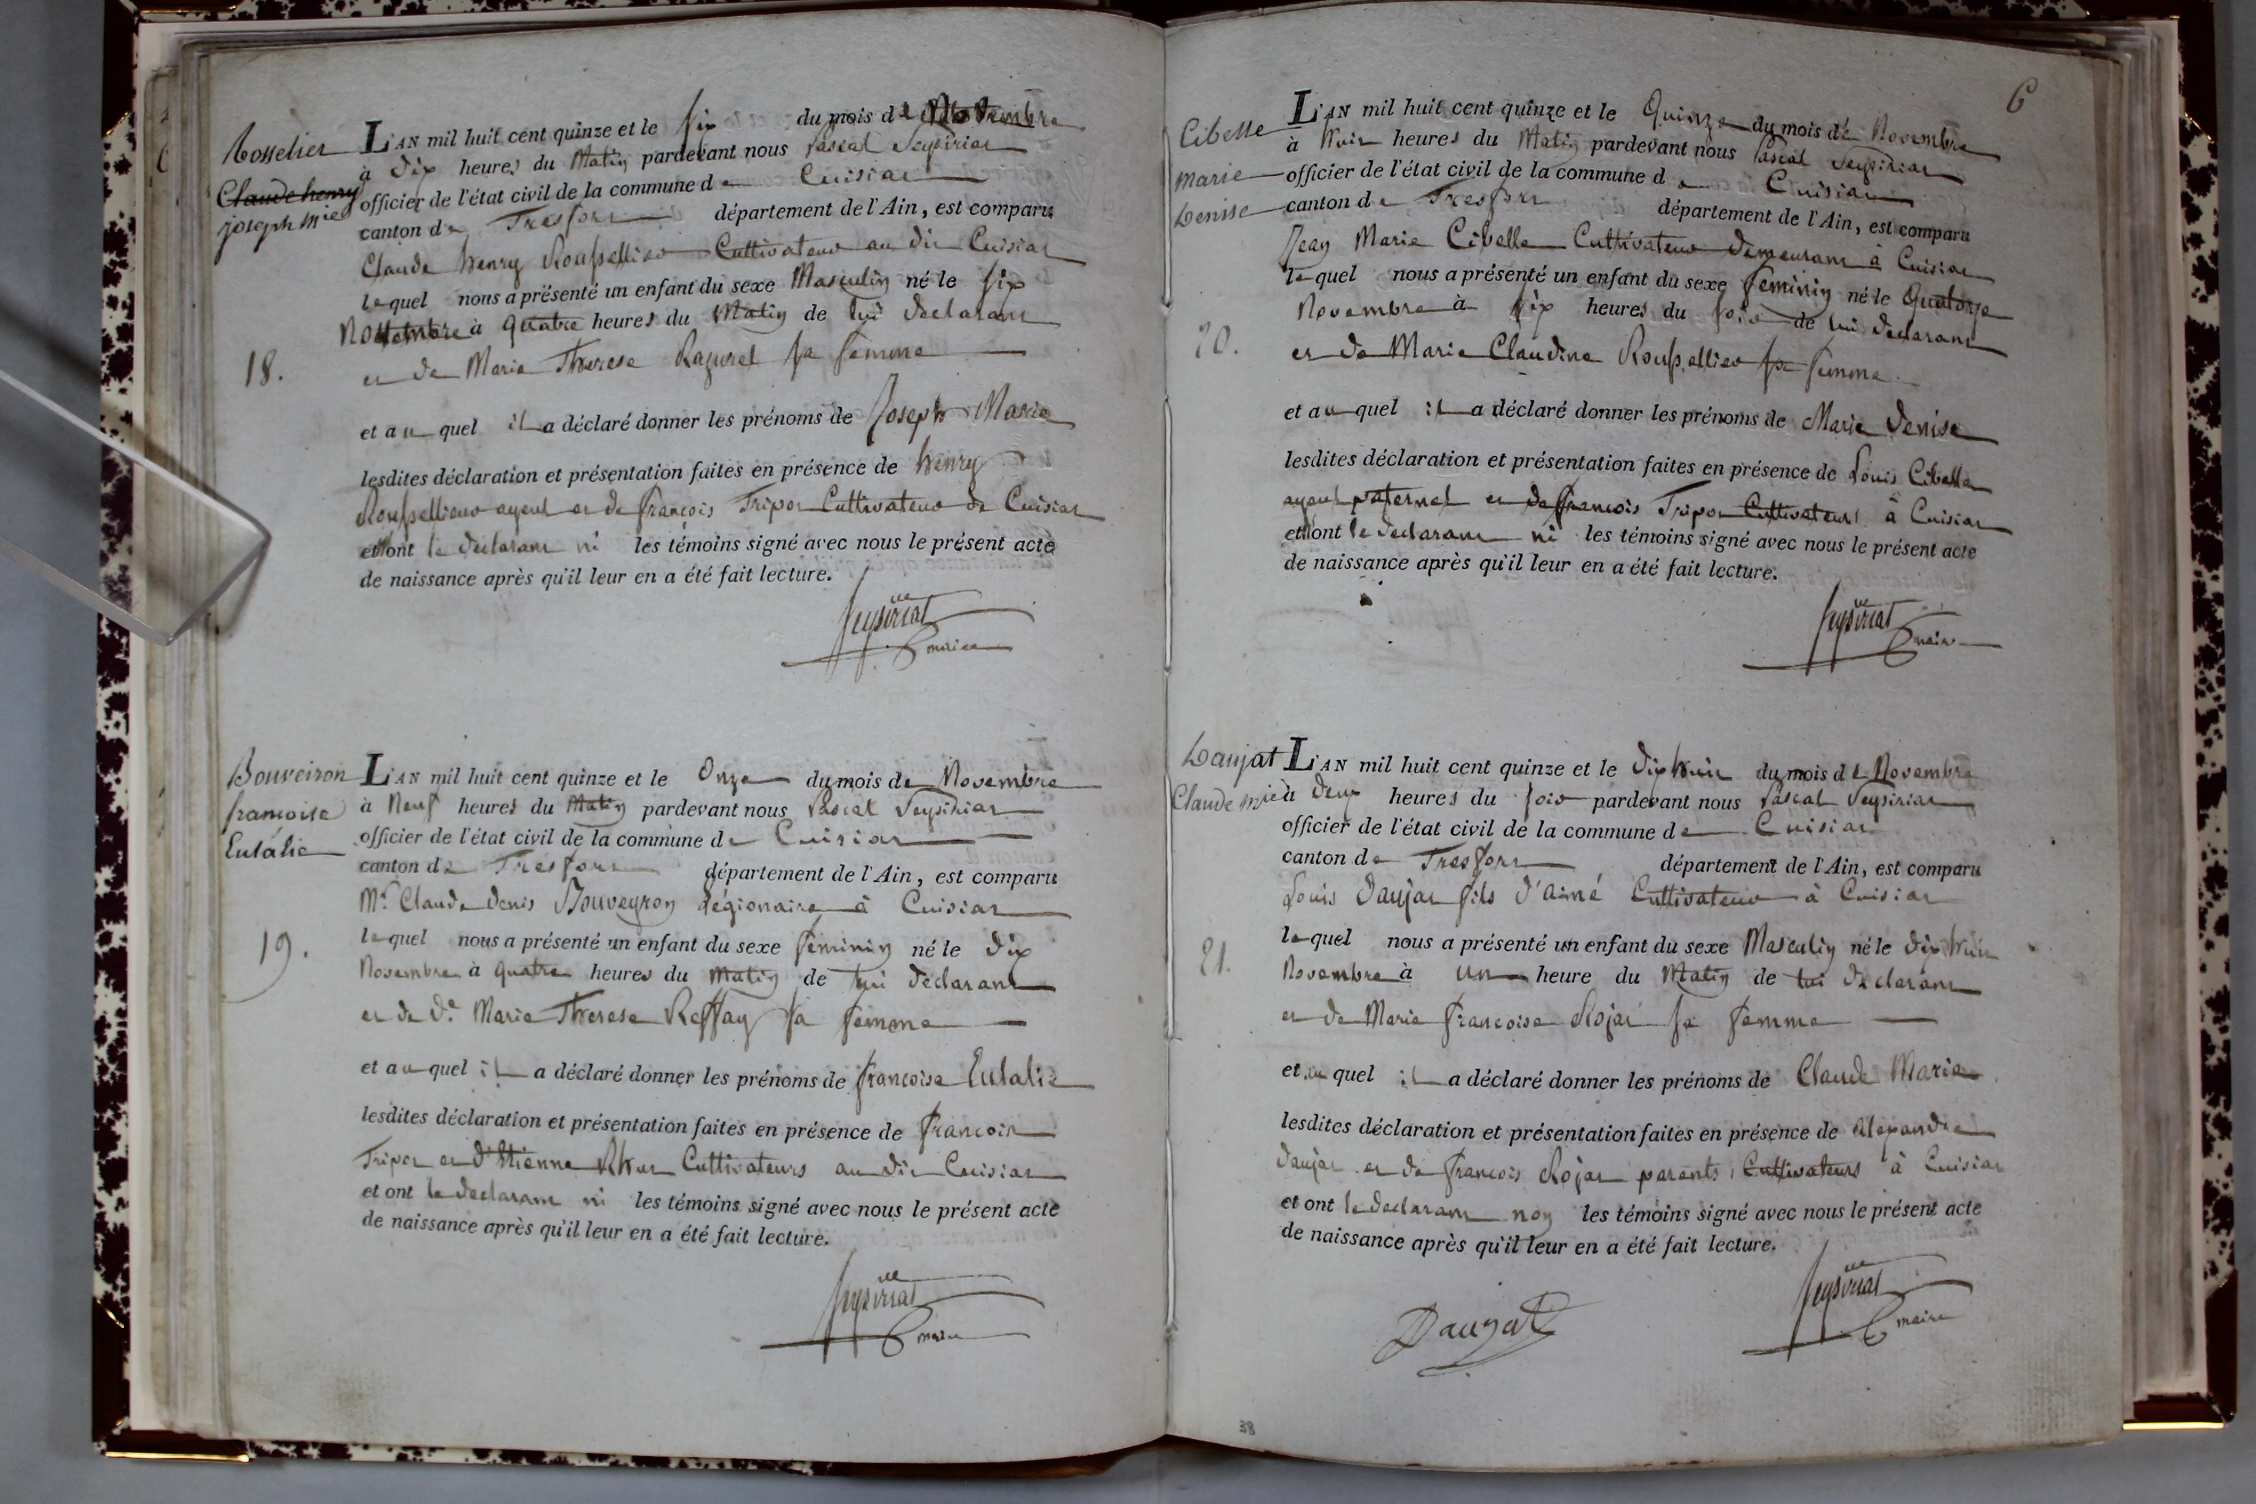 Rosselier
Claude henry
joseph mie
18.
L'AN mil huit cent quinze et le six du mois de Novembre
à dix heures du Matin pardevant nous Pascal Seysiriat
officier de l'état civil de la commune de Cuisiat
canton de Tresfort département de l'Ain, est comparu
Claude henry Rousselier Cultivateur au dit Cuisiat
lequel nous a présenté un enfant du sexe Masculin né le six
Novembre à quatre heures du Matin de lui declarant
et de Marie Therese Razurel sa femme
et auquel il a déclaré donner les prénoms de Joseph Marie
lesdites déclaration et présentation faites en présence de henry
Roussellieur ayeul et de françois Tripoz Cultivateur de Cuisiat
et ont le declarant ni les témoins signé avec nous le présent acte
de naissance après qu'il leur en a été fait lecture.
Seysiriat
maire
Bouveiron
françoise
Eulalie
19.
L'AN mil huit cent quinze et le Onze du mois de Novembre
à Neuf heures du Matin pardevant nous Pascal Seysiriat
officier de l'état civil de la commune de Cuisiat
canton de Tresfort département de l'Ain, est comparu
Mr. Claude Denis Bouveyron Légionaire à Cuisiat
lequel nous a présenté un enfant du sexe feminin né le dix
Novembre à quatre heures du Matin de lui declarant
et de De. Marie Therese Reffay sa femme
et auquel il a déclaré donner les prénoms de francoise Eulalie
lesdites déclaration et présentation faites en présence de francois
Tripoz et d'Etienne Cultivateurs au dit Cuisiat
et ont le declarant ni les témoins signé avec nous le présent acte
de naissance après qu'il leur en a été fait lecture.
Seysiriat
maire
6
Cibelle
Marie
Denise
20.
L'AN mil huit cent quinze et le Quinze du mois de Novembre
à huit heures du Matin pardevant nous Pascal Seysiriat
officier de l'état civil de la commune de Cuisiat
canton de Tresfort département de l'Ain, est comparu
Jean Marie Cibelle Cultivateur demeurant à Cuisiat
lequel nous a présenté un enfant du sexe feminin né le Quatorze
Novembre à six heures du soir de lui declarant
et de Marie Claudine Roussellier sa femme
et auquel il a déclaré donner les prénoms de Marie Denise
lesdites déclaration et présentation faites en présence de Louis Cibelle
ayeul paternel et de francois Tripoz Cultivateurs à Cuisiat
et ont le declarant ni les témoins signé avec nous le présent acte
de naissance après qu'il leur en a été fait lecture.
Seysiriat
maire
Daujat
Claude mie
21.
L'AN mil huit cent quinze et le dix huit du mois de Novembre
à deux heures du soir pardevant nous Pascal Seysiriat
officier de l'état civil de la commune de Cuisiat
canton de Tresfort département de l'Ain, est comparu
Louis Daujat fils d'aimé Cultivateur à Cuisiat
lequel nous a présenté un enfant du sexe Masculin né le dix huit
Novembre à un heure du Matin de lui declarant
et de Marie francoise Rojat sa femme
et au quel il a déclaré donner les prénoms de Claude Marie
lesdites déclaration et présentation faites en présence de Alexandre
Daujat et de francois Rojat parents, Cultivateurs à Cuisiat
et ont le declarant non les témoins signé avec nous le présent acte
de naissance après qu'il leur en a été fait lecture.
Daujat
Seysiriat
maire
38